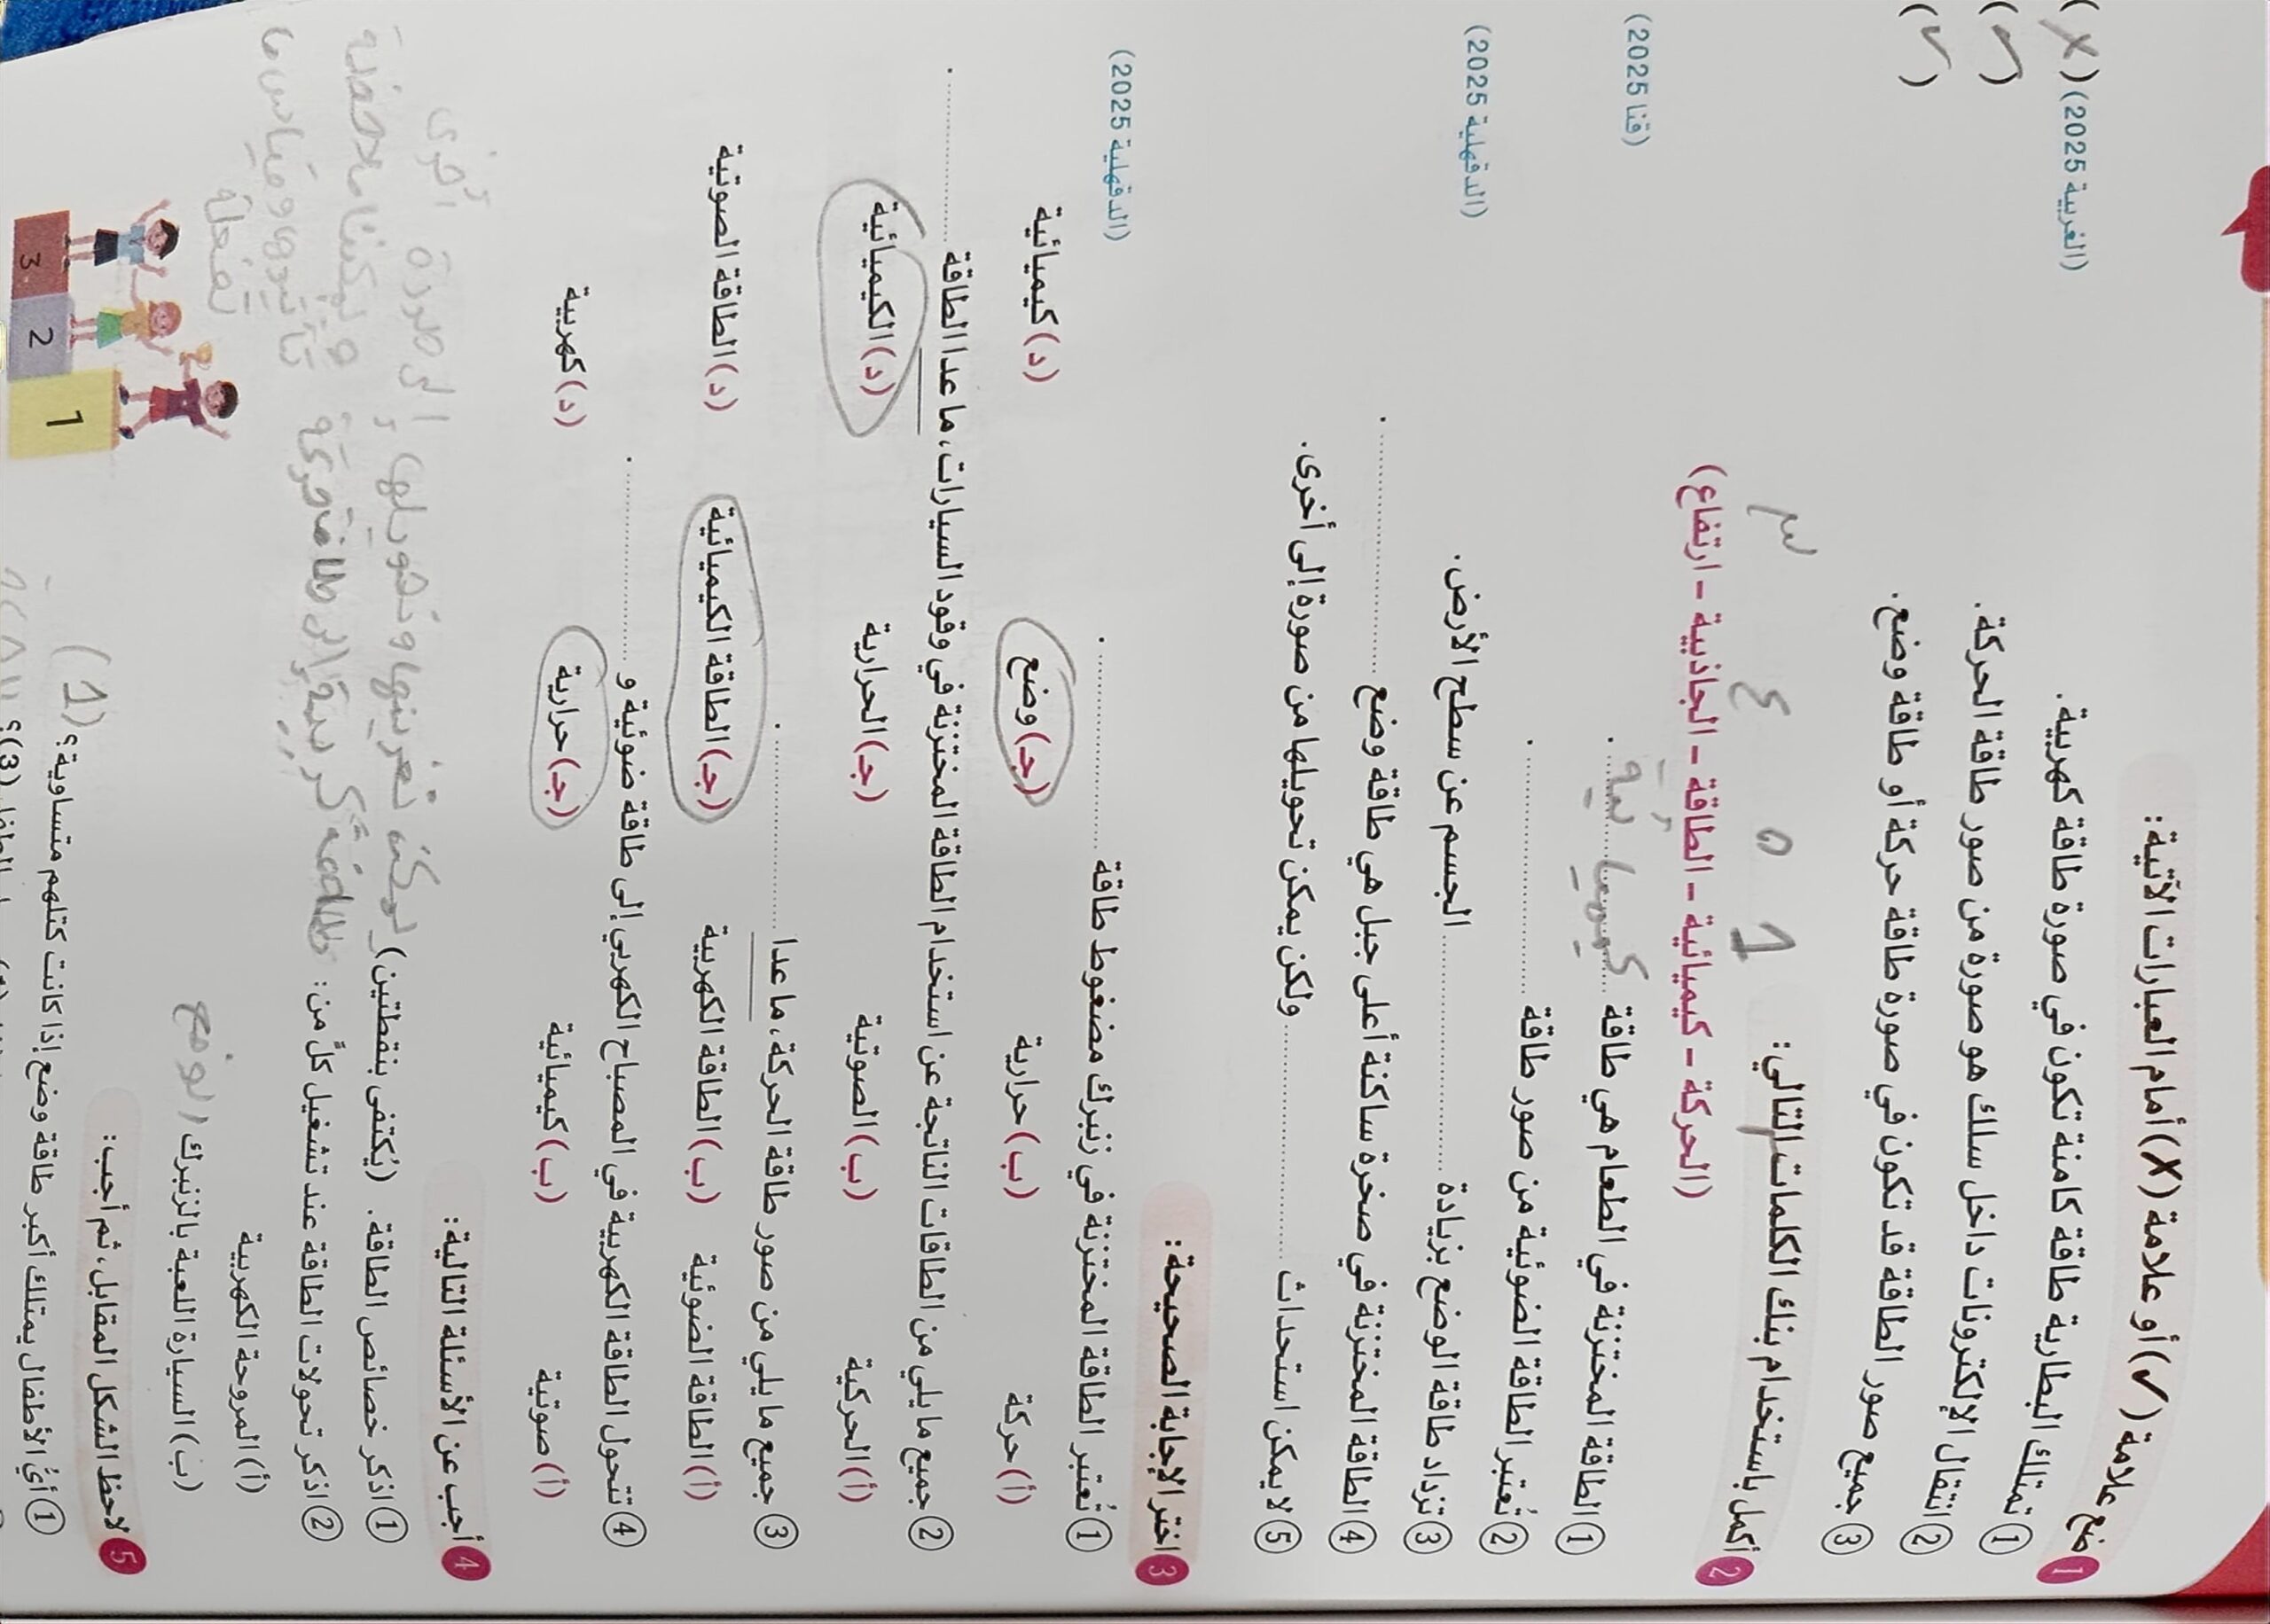 1 ضع علامة (✓) أو علامة (X) أمام العبارات الآتية:
① تمتلك البطارية طاقة كامنة تكون في صورة طاقة كهربية. (الغربية 2025) (X)
② انتقال الإلكترونات داخل سلك هو صورة من صور طاقة الحركة. (✓)
③ جميع صور الطاقة قد تكون في صورة طاقة حركة أو طاقة وضع. (✓)
2 أكمل باستخدام بنك الكلمات التالي:
1 ٥ ٤ ٣
(الحركة - كيميائية - الطاقة - الجاذبية - ارتفاع)
① الطاقة المختزنة في الطعام هي طاقة كيميائية. (قنا 2025)
② تُعتبر الطاقة الضوئية من صور طاقة ............ .
③ تزداد طاقة الوضع بزيادة ............ الجسم عن سطح الأرض. (الدقهلية 2025)
④ الطاقة المختزنة في صخرة ساكنة أعلى جبل هي طاقة وضع ............ .
⑤ لا يمكن استحداث ............ ولكن يمكن تحويلها من صورة إلى أخرى.
3 اختر الإجابة الصحيحة:
① تُعتبر الطاقة المختزنة في زنبرك مضغوط طاقة ............ . (الدقهلية 2025)
(أ) حركة (ب) حرارية (جـ) وضع (د) كيميائية
② جميع ما يلي من الطاقات الناتجة عن استخدام الطاقة المختزنة في وقود السيارات، ما عدا الطاقة ............ .
(أ) الحركية (ب) الصوتية (جـ) الحرارية (د) الكيميائية
③ جميع ما يلي من صور طاقة الحركة، ما عدا ............ .
(أ) الطاقة الضوئية (ب) الطاقة الكهربية (جـ) الطاقة الكيميائية (د) الطاقة الصوتية
④ تتحول الطاقة الكهربية في المصباح الكهربي إلى طاقة ضوئية و ............ .
(أ) صوتية (ب) كيميائية (جـ) حرارية (د) كهربية
4 أجب عن الأسئلة التالية:
① اذكر خصائص الطاقة. (يُكتفى بنقطتين) يمكن تخزينها وتحويلها إلى صورة أخرى
② اذكر تحولات الطاقة عند تشغيل كلٍّ من:
(أ) المروحة الكهربية
(ب) السيارة اللعبة بالزنبرك الوضع
5 لاحظ الشكل المقابل، ثم أجب:
① أيُّ الأطفال يمتلك أكبر طاقة وضع إذا كانت كتلهم متساوية؟ (1)
1
2
3